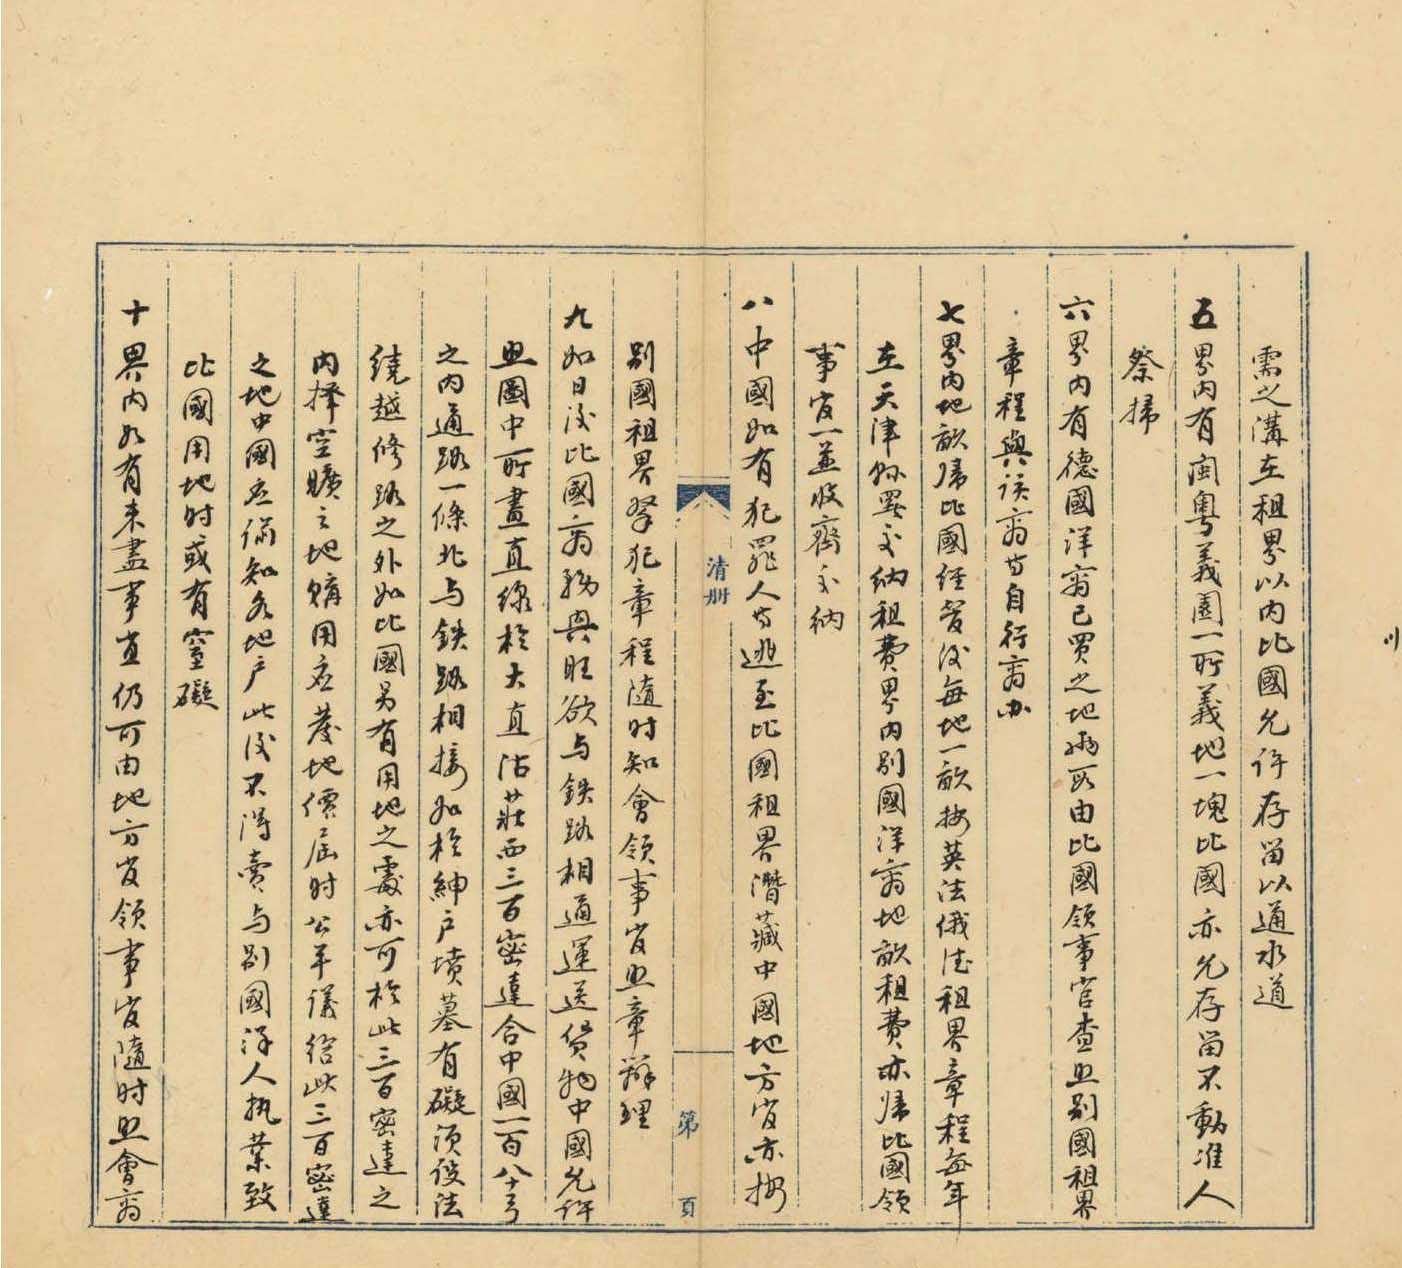 需之溝在租界以内比國允许存留以通水道
五界内有闽粤義園一所義地一塊比國亦允存留不動准人
祭掃
六界内有德國洋商已買之地兩段由比國領事官查照别國租界
章程與该商等自行商办
七界内地畝歸比國经管後每地一畝按英法俄德租界章程每年
在天津縣署交纳租費界内别國洋商地畝租費亦歸比國領
事官一並收齊交纳
八中國如有犯罪人等逃至比國租界潛藏中國地方官亦按
清册
第 頁
别國租界拏犯章程隨时知會領事官照章辦理
九如日後比國商務興旺欲与鉄路相通運送貨物中國允许
照圖中所畫直線於大直沽莊西三百密達合中國一百八十弓
之内通路一條北与鉄路相接如於紳户墳墓有礙须设法
绕越修路之外如比國另有用地之處亦可於此三百密達之
内擇空曠之地購用应發地價届时公平議给此三百密達
之地中國应谕知各地户此後不得賣与别國洋人执業致
比國用地时或有窒礙
十界内如有未盡事宜仍可由地方官領事官隨时照會商